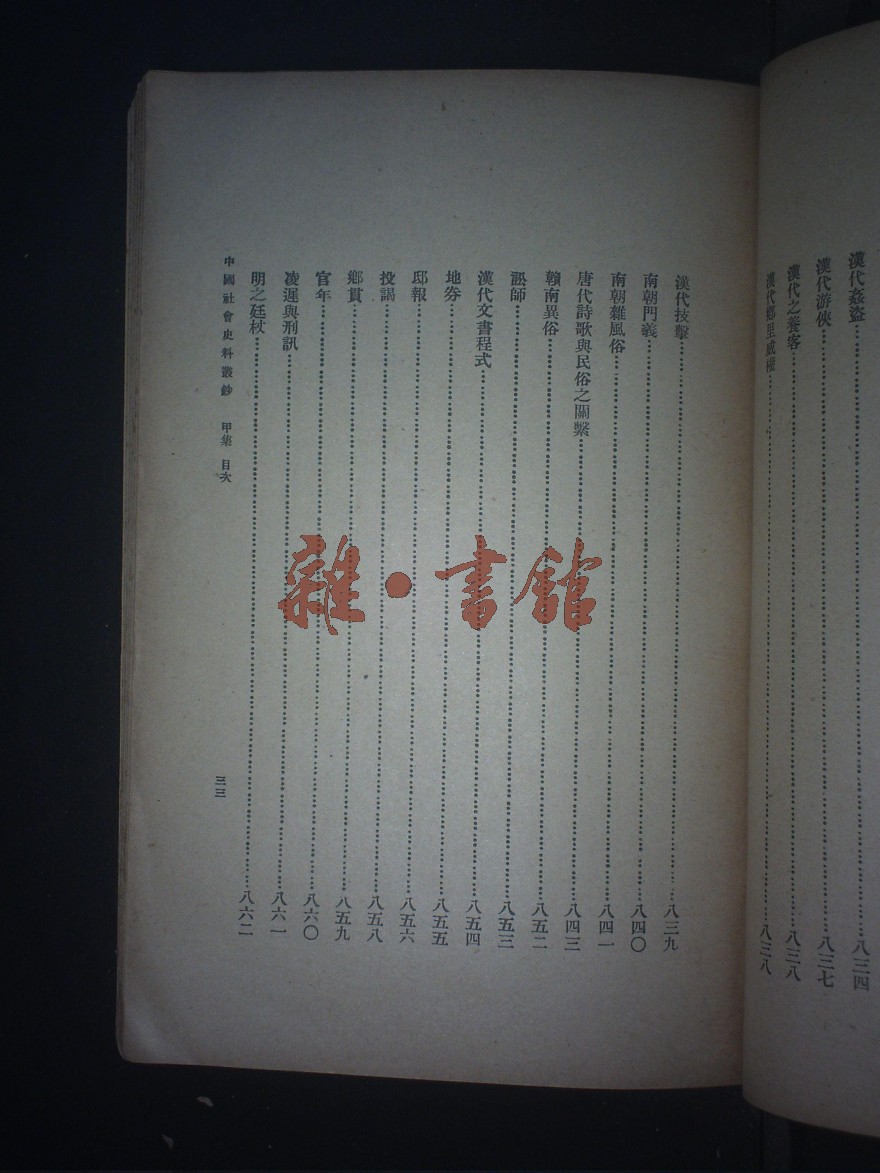 漢代姦盜……八三四
漢代游俠……八三七
漢代之養客……八三八
漢代鄉里威權……八三八
漢代技擊……八三九
南朝門義……八四〇
南朝雜風俗……八四一
唐代詩歌與民俗之關繫……八四三
贛南異俗……八五二
訟師……八五三
漢代文書程式……八五四
地券……八五五
邸報……八五六
投謁……八五八
鄉貫……八五九
官年……八六〇
凌遲與刑訊……八六一
明之廷杖……八六二
中國社會史料叢鈔 甲集 目次
三三
雜·書館